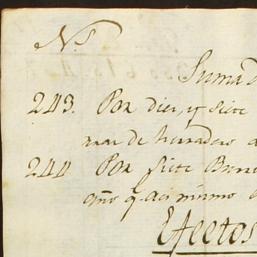 N.
Suma d
243. Por diez, y siete
de herradero a
244 Por siete Burr
año q. asi mismo
Efectos